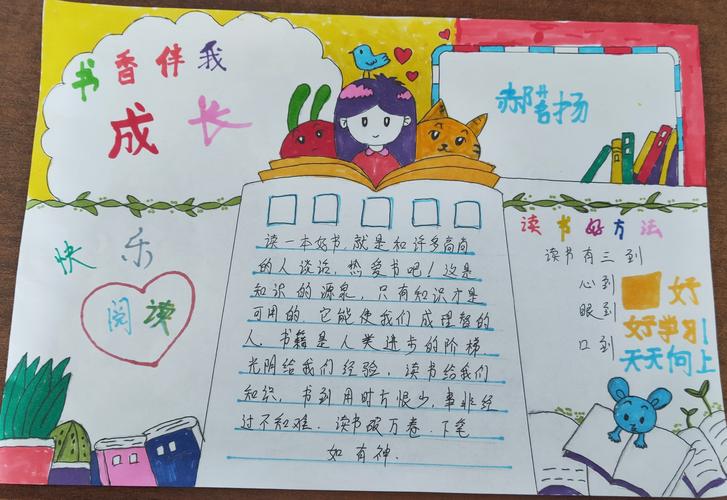 书香伴我
成长
快乐
阅读
读一本好书,就是和许多高尚
的人谈话,热爱书吧!这是
知识的源泉,只有知识才是
可用的,它能使我们成理智的
人.书籍是人类进步的阶梯.
光阴给我们经验,读书给我们
知识,书到用时方恨少,事非经
过不知难.读书破万卷.下笔
如有神.
读书好方法
读书有三到
心到
眼到
口到
好
好学习!
天天向上